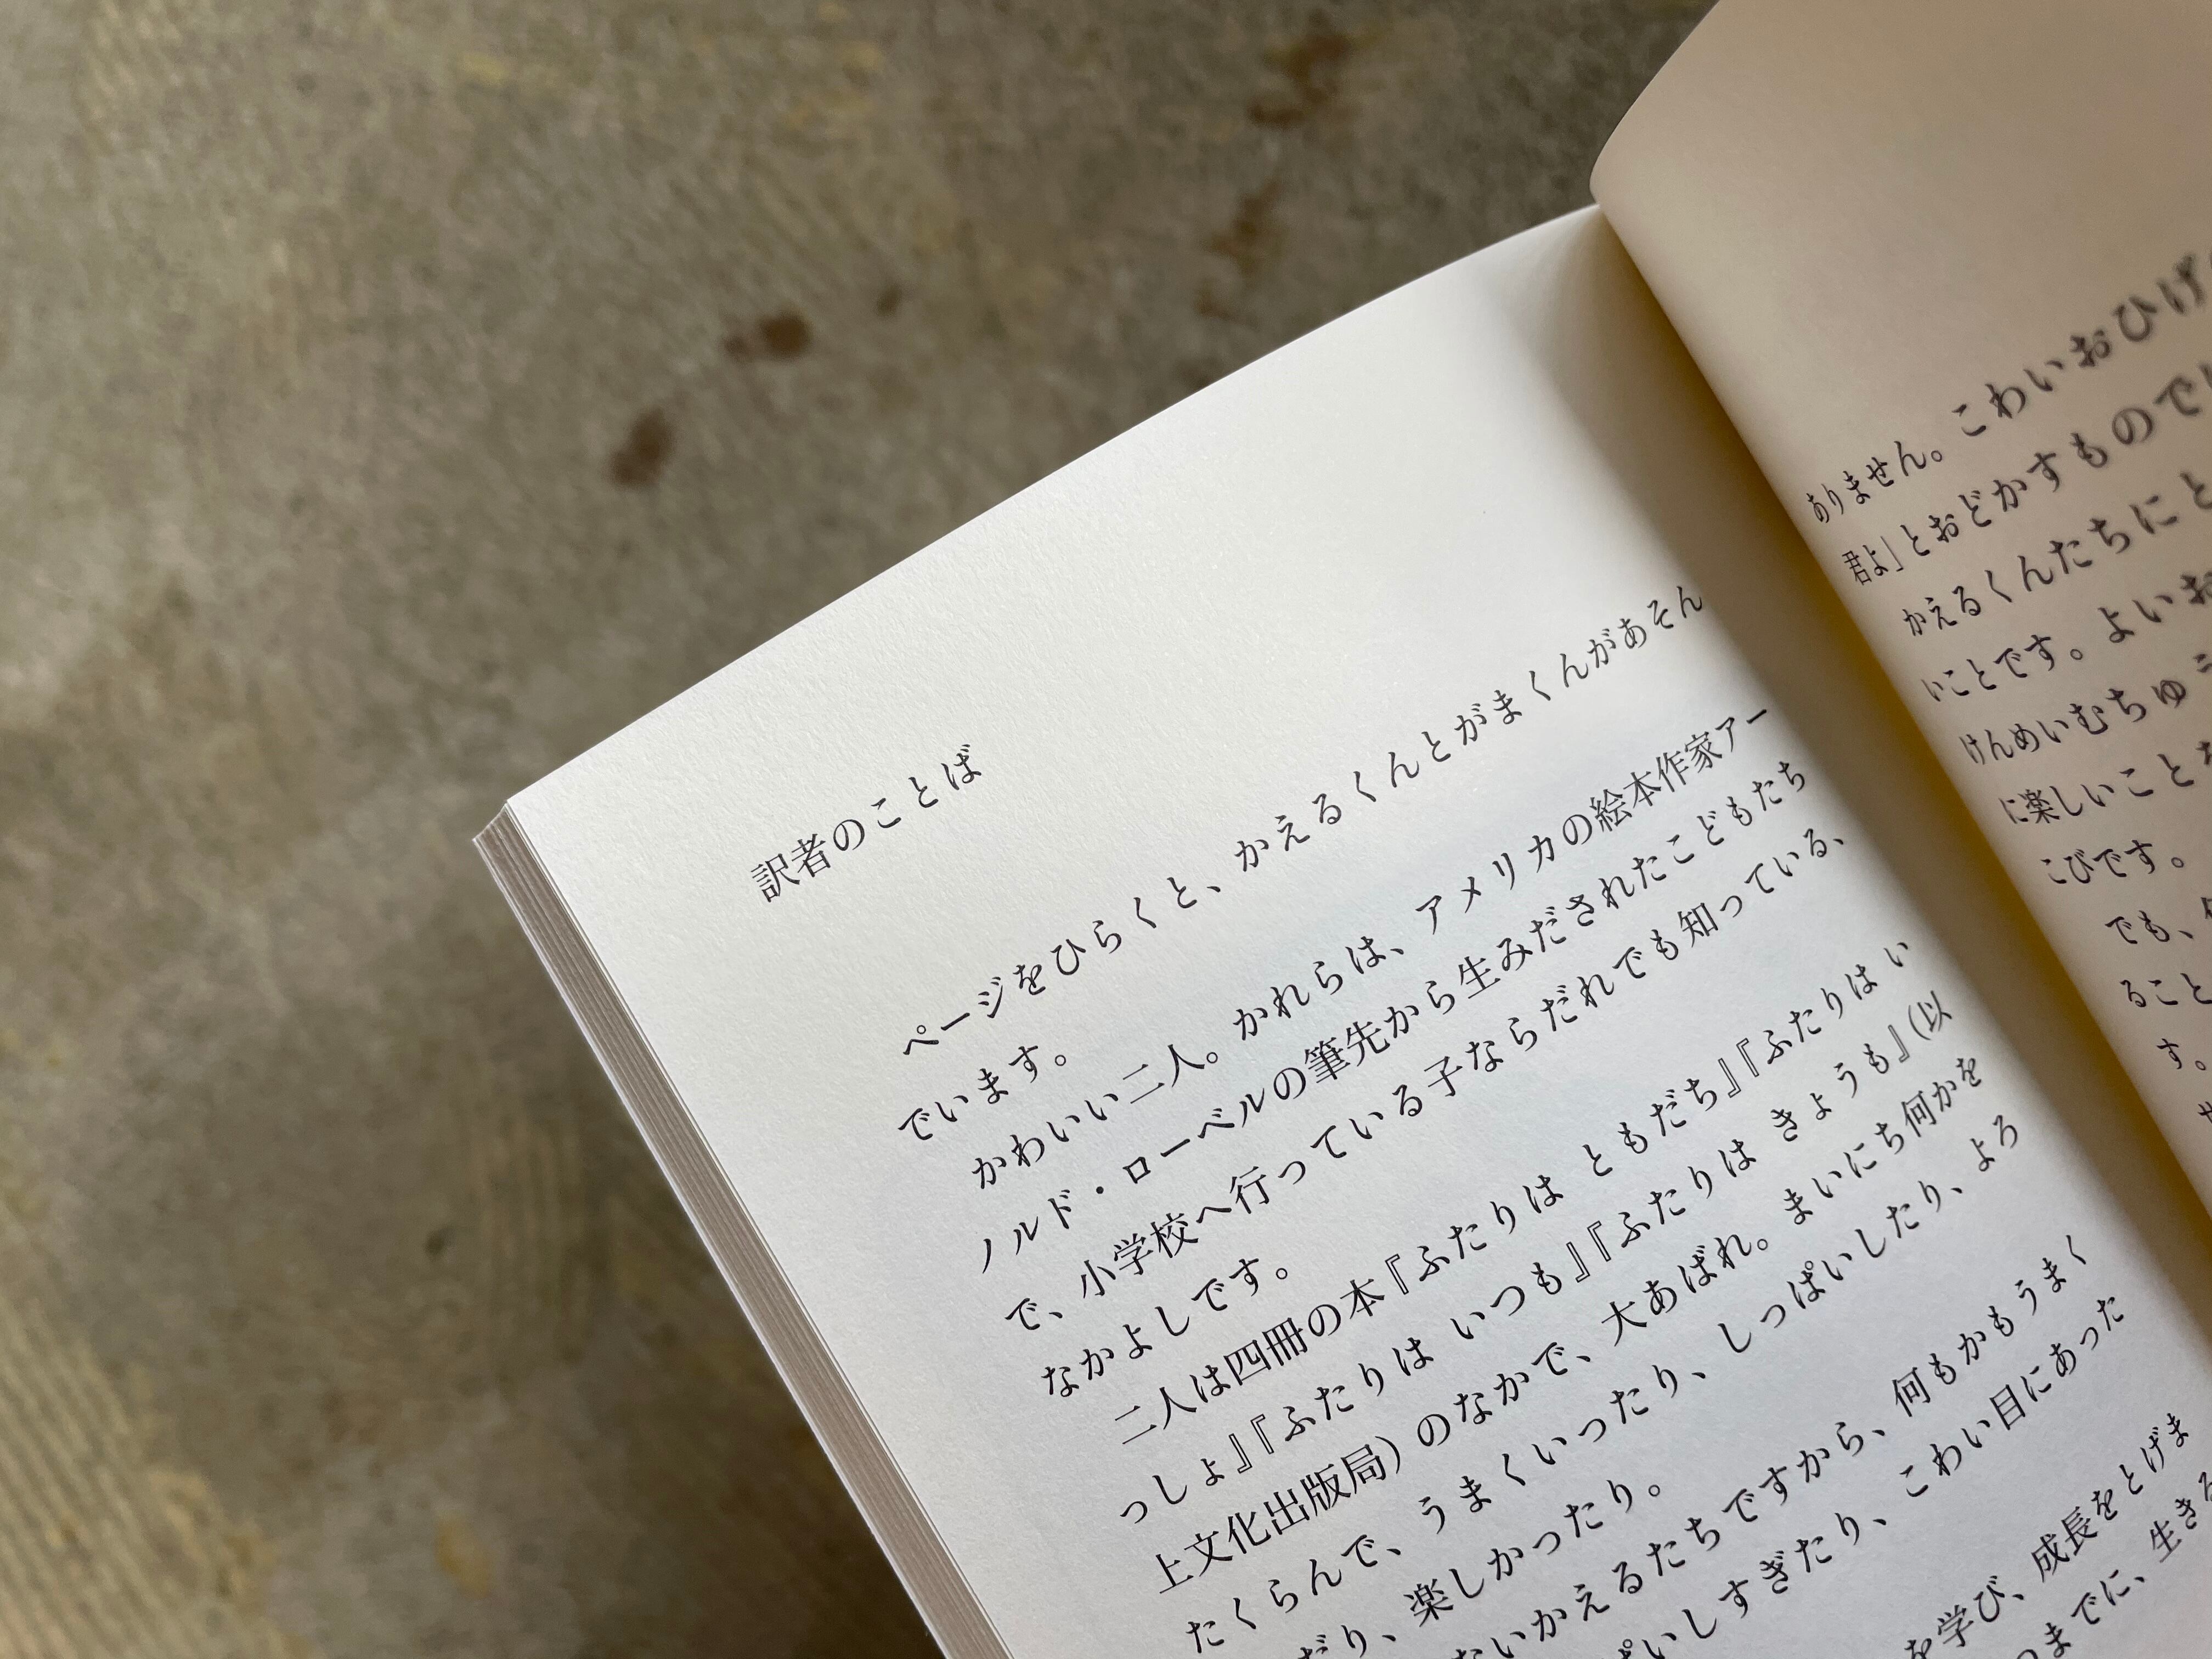 訳者のことば
ページをひらくと、かえるくんとがまくんがあそん
でいます。
かわいい二人。かれらは、アメリカの絵本作家アー
ノルド・ローベルの筆先から生みだされたこどもたち
で、小学校へ行っている子ならだれでも知っている、
なかよしです。
二人は四冊の本『ふたりは ともだち』『ふたりは い
っしょ』『ふたりは いつも』『ふたりは きょうも』(以
上文化出版局)のなかで、大あばれ。まいにち何かを
たくらんで、うまくいったり、しっぱいしたり、よろ
だり、楽しかったり。
ないかえるたちですから、何もかもうまく
ぱいしすぎたり、こわい目にあった
を学び、成長をとげま
つまでに、生きる
ありません。こわいおひげ
君よ」とおどかすものでい
かえるくんたちにと
いことです。よいお
けんめいむちゅう
に楽しいことを
こびです。
でも、
ること
す。
せ